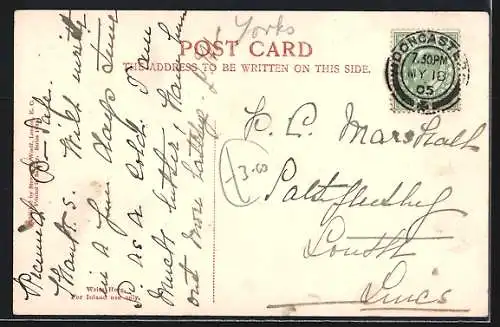 Yorks
POST CARD
THE ADDRESS TO BE WRITTEN ON THIS SIDE.
DONCASTER
7.30PM
MY 18
05
P.C. Marshall
Saltfleetby
Louth
Lincs
-3.00
Received P. safe.
Thanks. Will write
in a few days time
is as a cold. I am
much better, have been
out more lately.
Write Here.
For Inland use only.